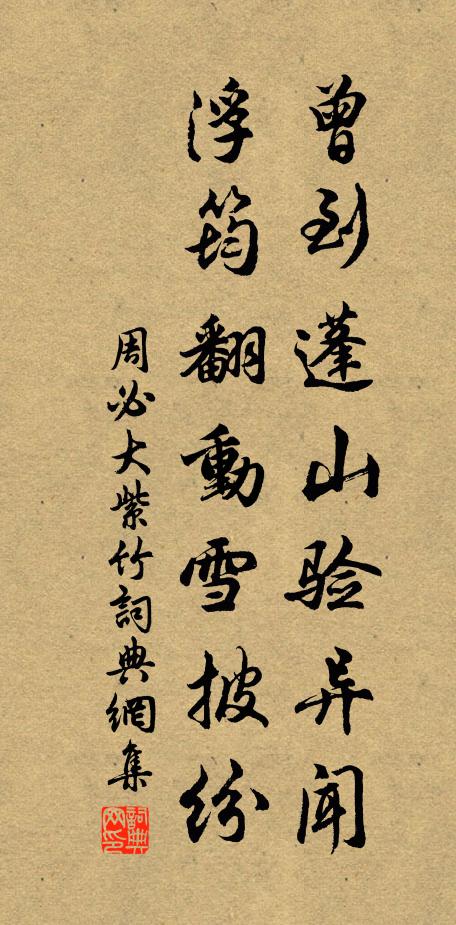 曾到蓬山验异闻
浮筠翻動雪披紛
周必大紫竹詞典網集
詞典网印